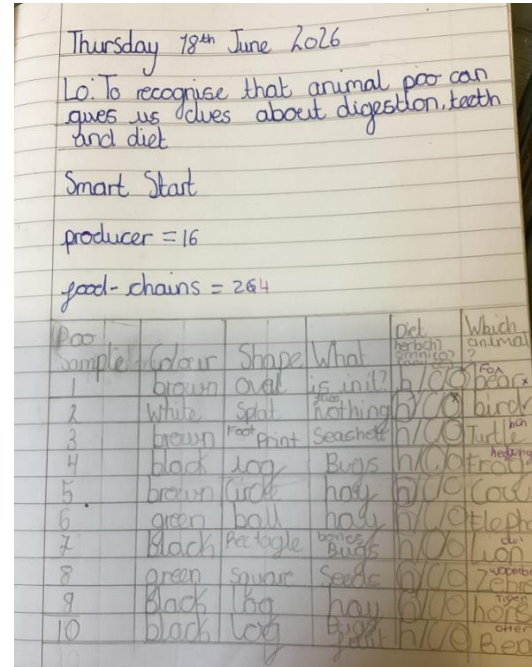 Thursday 18th June 2026
Lo: To recognise that animal poo can
gives us clues about digestion, teeth
and diet
Smart Start
producer = 16
food-chains = 264
Poo sample Colour Shape What is in it? Diet Which animal?
1 brown oval h/c/o bear Fox
2 White Splat nothing h/c/o bird
3 brown Foot Print Seashell h/c/o Turtle
4 black log Bugs h/c/o Frog
5 brown Circle hay h/c/o Cow
6 green ball hay h/c/o Eleph
7 Black Rectagle bones Bugs h/c/o Lion
8 green Square Seeds h/c/o Zebr
9 Black Log hay h/c/o hors Tiger
10 black Log Bugs h/c/o otter